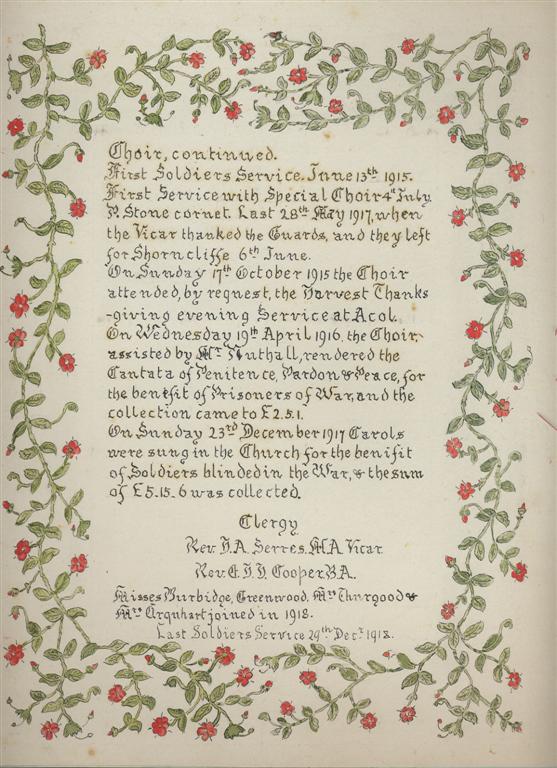 Choir, continued.
First Soldiers Service. June 13th 1915.
First Service with Special Choir 4th July
P. Stone cornet. Last 28th May 1917, when
the Vicar thanked the Guards, and they left
for Shorncliffe 6th June.
On Sunday 17th October 1915 the Choir
attended, by request, the Harvest Thanks
-giving evening Service at Acol.
On Wednesday 19th April 1916, the Choir,
assisted by Mr Nuthall, rendered the
Cantata of Penitence, Pardon & Peace, for
the benefit of Prisoners of War, and the
collection came to £2.5.1.
On Sunday 23rd December 1917 Carols
were sung in the Church for the benifit
of Soldiers blinded in the War, & the sum
of £5.15.6 was collected.
Clergy
Rev. H. A. Serres. M.A. Vicar
Rev. J. H. Cooper. B.A.
Misses Burbidge, Greenwood, Mrs Thurgood &
Mrs Urquhart joined in 1918.
Last Soldiers Service 29th Decr 1918.